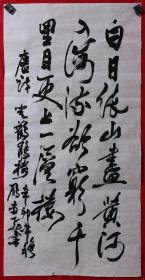 白日依山盡黄河
入海流欲窮千
里目更上一層樓
唐詩 辛卯年